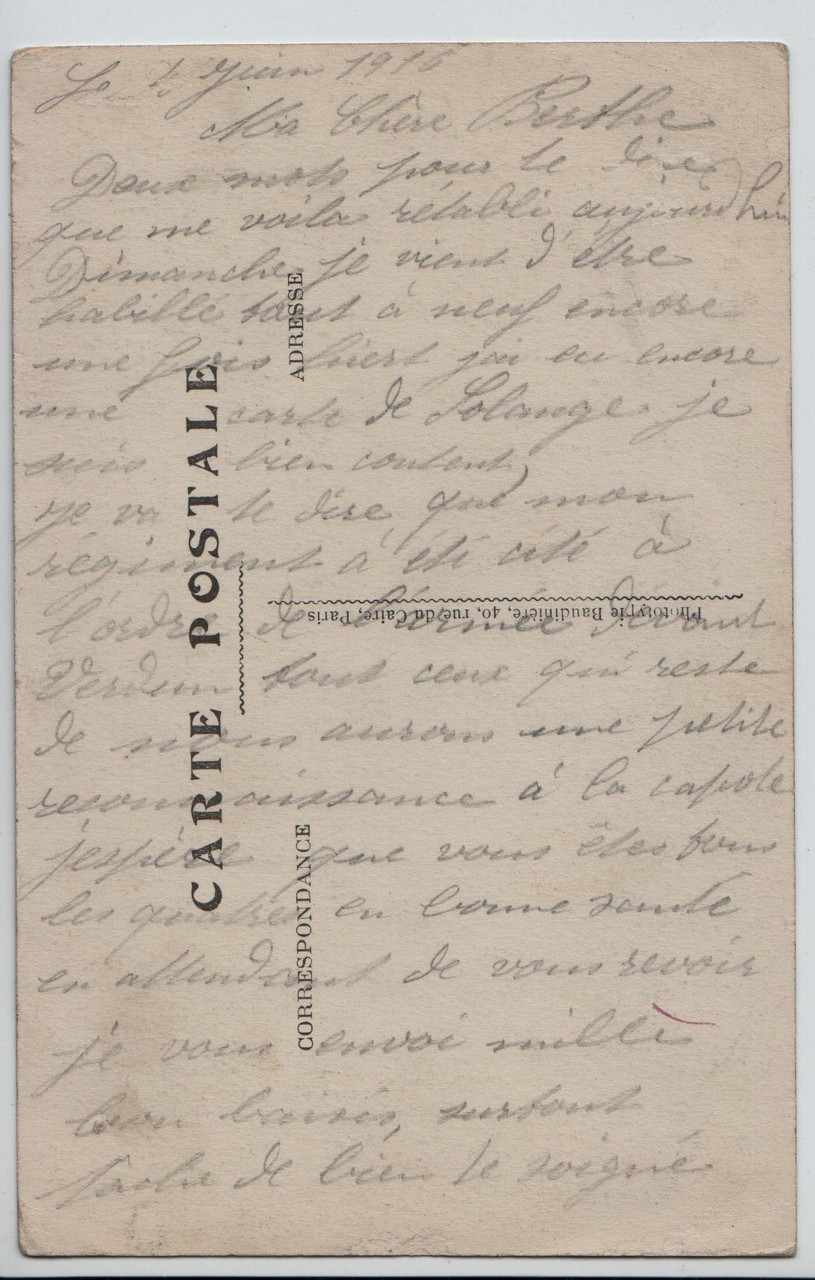 Le 4 Juin 1916
Ma Chère Berthe
Deux mots pour te dire
que me voila rétabli aujourd'hui
Dimanche, je vient d'être
habillé tout à neuf encore
une fois hiert jai eu encore
une carte de Solange je
suis bien content,
je va te dire que mon
régiment à été cité à
l'ordre de l'armée devant
Verdun tout ceux qui reste
de nous aurons une petite
reconnaissance à la capote
j'espère que vous êtes tous
les quatres en bonne santé
en attendant de vous revoir
je vous envoi mille
bon baisés, surtout
tache de bien te soigné
CARTE POSTALE
ADRESSE
CORRESPONDANCE
Phototypie Baudinière, 40, rue du Caire, Paris